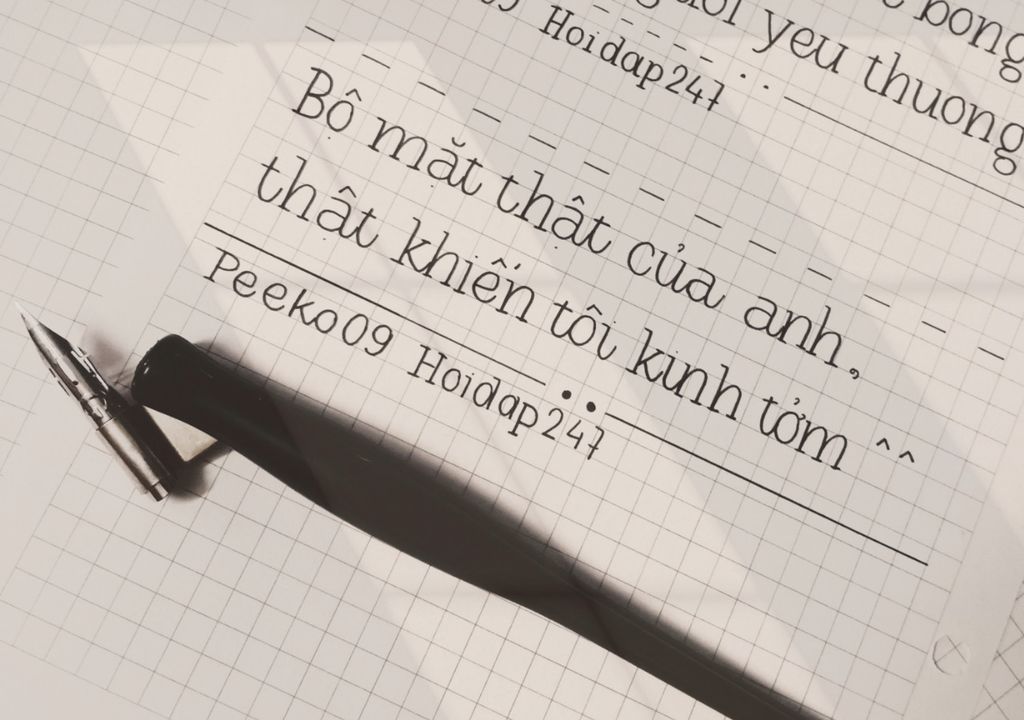 bong
yeu thuong
Hoidap247
Bộ mặt thật của anh,
thật khiến tôi kinh tởm ^^
Peeko09 Hoidap247